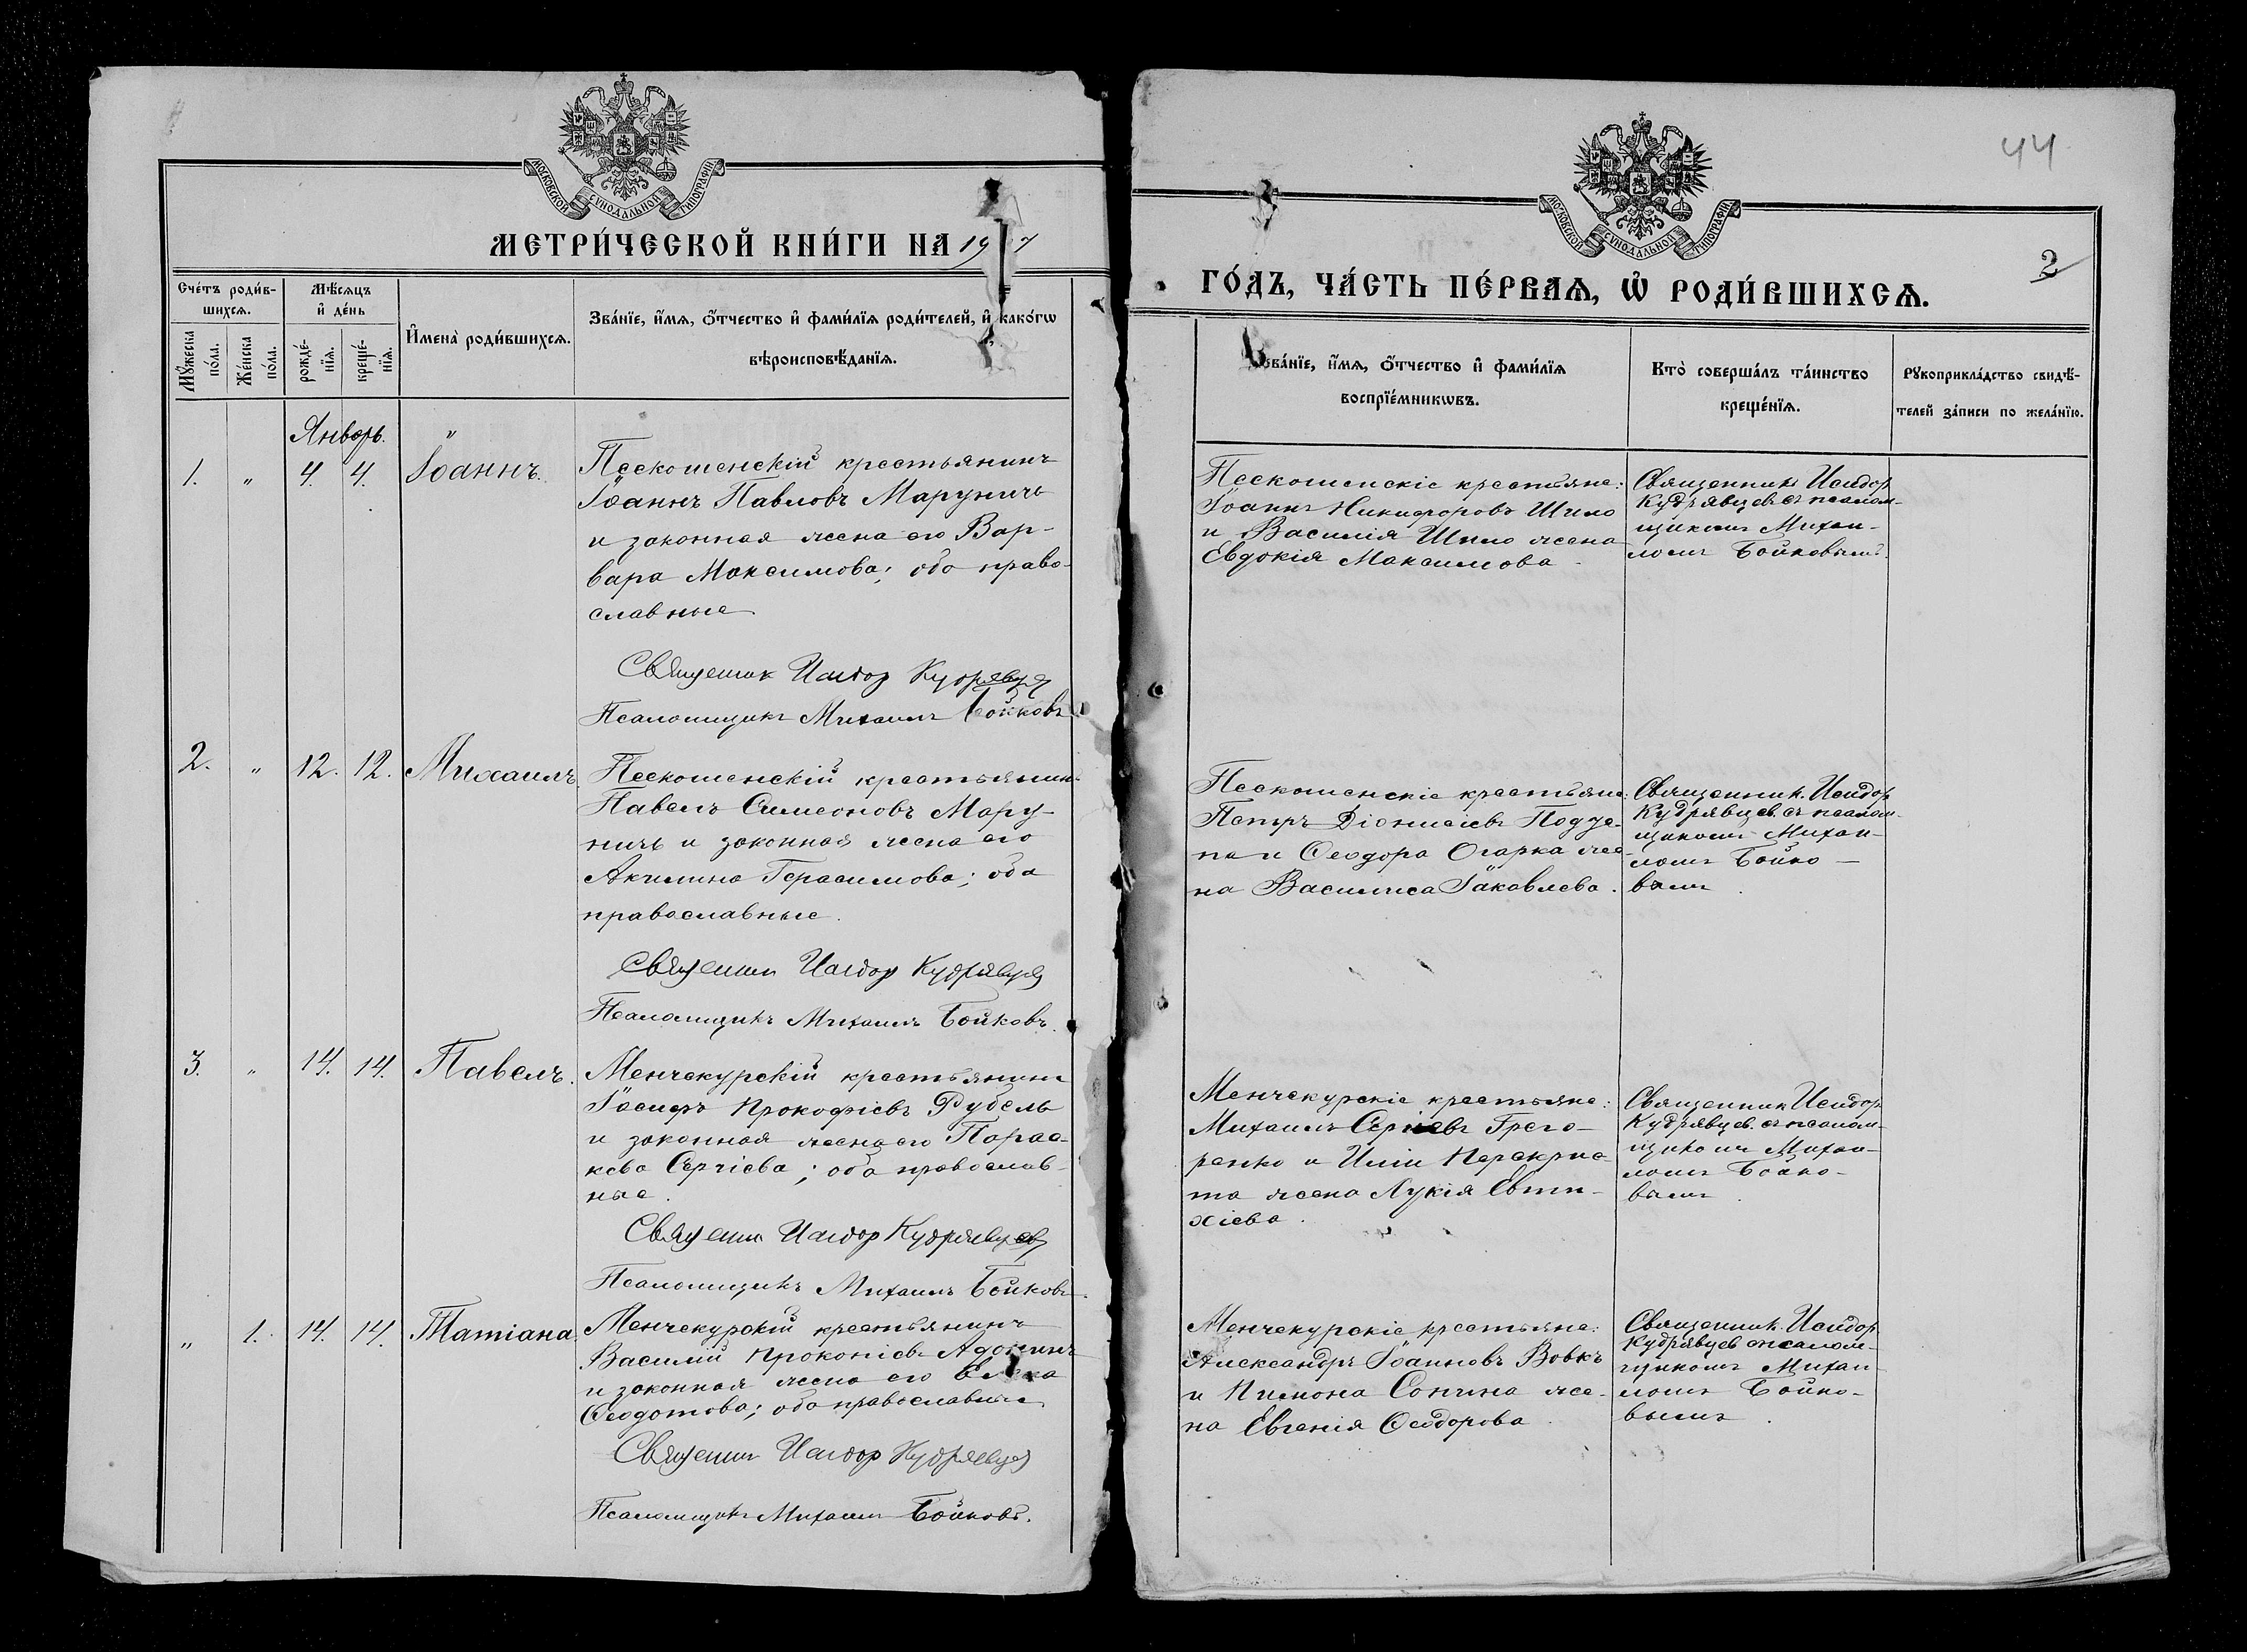 МОСКОВСКОЙ СУНОДАЛЬНОЙ ТИПОГРАФІИ
МЕТРИ́ЧЕСКОЙ КНИ́ГИ НА 19 7
Сче́тъ роди́в-
шихсѧ.
Мѣ́сѧцъ
и҆ де́нь
И҆мена̀ роди́вшихсѧ.
Зва́нїе, и҆́мѧ, ѻ҆́тчество и҆ фами́лїѧ роди́телей, и҆ како́гѡ
вѣроисповѣ́данїѧ.
Мꙋ́жеска
по́ла.
Же́нска
по́ла.
рожде́-
нїѧ.
креще́-
нїѧ.
Январь. "
1. " 4. 4. Іоаннъ.
Пескошенскій крестьянинъ
Іоаннъ Павловъ Маруничъ
и законная жена его Вар-
вара Максимова; оба право-
славные
Священник Исидор Кудрявцев
Псаломщикъ Михаилъ Бойковъ
2. " 12. 12. Михаилъ.
Пескошенскій крестьянин.
Павелъ Симеоновъ Мару-
ничъ и законная жена его
Акилина Герасимова; оба
православные.
Священник Исидор Кудрявцев
Псаломщикъ Михаилъ Бойковъ.
3. " 14. 14. Павелъ.
Менчекурскій крестьянинъ
Іосифъ Прокофіевъ Рубель
и законная жена его Парас-
кева Сергіева; оба православ-
ные.
Священник Исидор Кудрявцев
Псаломщикъ Михаилъ Бойковъ.
" 1. 14. 14. Татіана.
Менчекурскій крестьянинъ
Василій Прокопіевъ Адонинъ
и законная жена его
Ѳеодотова; оба православные
Священник Исидор Кудрявцев
Псаломщикъ Михаилъ Бойковъ.
44
МОСКОВСКОЙ СУНОДАЛЬНОЙ ТИПОГРАФІИ
2
ГО́ДЪ, ЧА́СТЬ ПЕ́РВАѦ, Ѡ҆ РОДИ́ВШИХСѦ.
Зва́нїе, и҆́мѧ, ѻ҆́тчество и҆ фами́лїѧ
воспрїе́мникѡвъ.
Кто̀ соверша́лъ та́инство
креще́нїѧ.
Рꙋкоприкла́дство свидѣ́-
телей за́писи по жела́нїю.
Пескошенскіе крестьяне:
Іоаннъ Никифоровъ Шило
и Василія Шило жена
Евдокія Максимова.
Священникъ Исидор
Кудрявцевъ съ псалом-
щикомъ Михаи-
ломъ Бойковымъ.
Пескошенскіе крестьяне:
Петръ Діонисіевъ Подде-
па и Ѳеодора Огарка же-
на Василиса Іаковлева.
Священник. Исидор
Кудрявцев. съ псалом-
щикомъ Михаи-
ломъ Бойко-
вымъ.
Менчекурскіе крестьяне:
Михаилъ Сергіевъ Григо-
ренко и Иліи Перекрис-
та жена Лукія Евти-
хіева.
Священник Исидор
Кудрявцев. съ псалом-
щикомъ Михаи-
ломъ Бойко-
вымъ.
Менчекурскіе крестьяне:
Александръ Іоанновъ Вовкъ
и Пимона Сопина же-
на Евгенія Ѳеодорова.
Священник. Исидор
Кудрявцев съ псалом-
щикомъ Михаи-
ломъ Бойко-
вымъ.